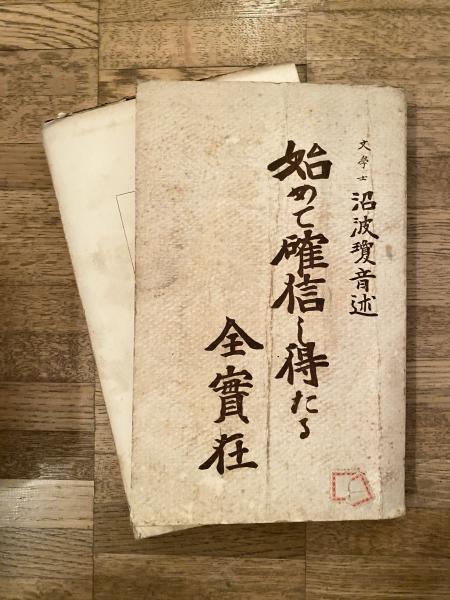 文學士 沼波瓊音述
始めて確信し得たる
全實在